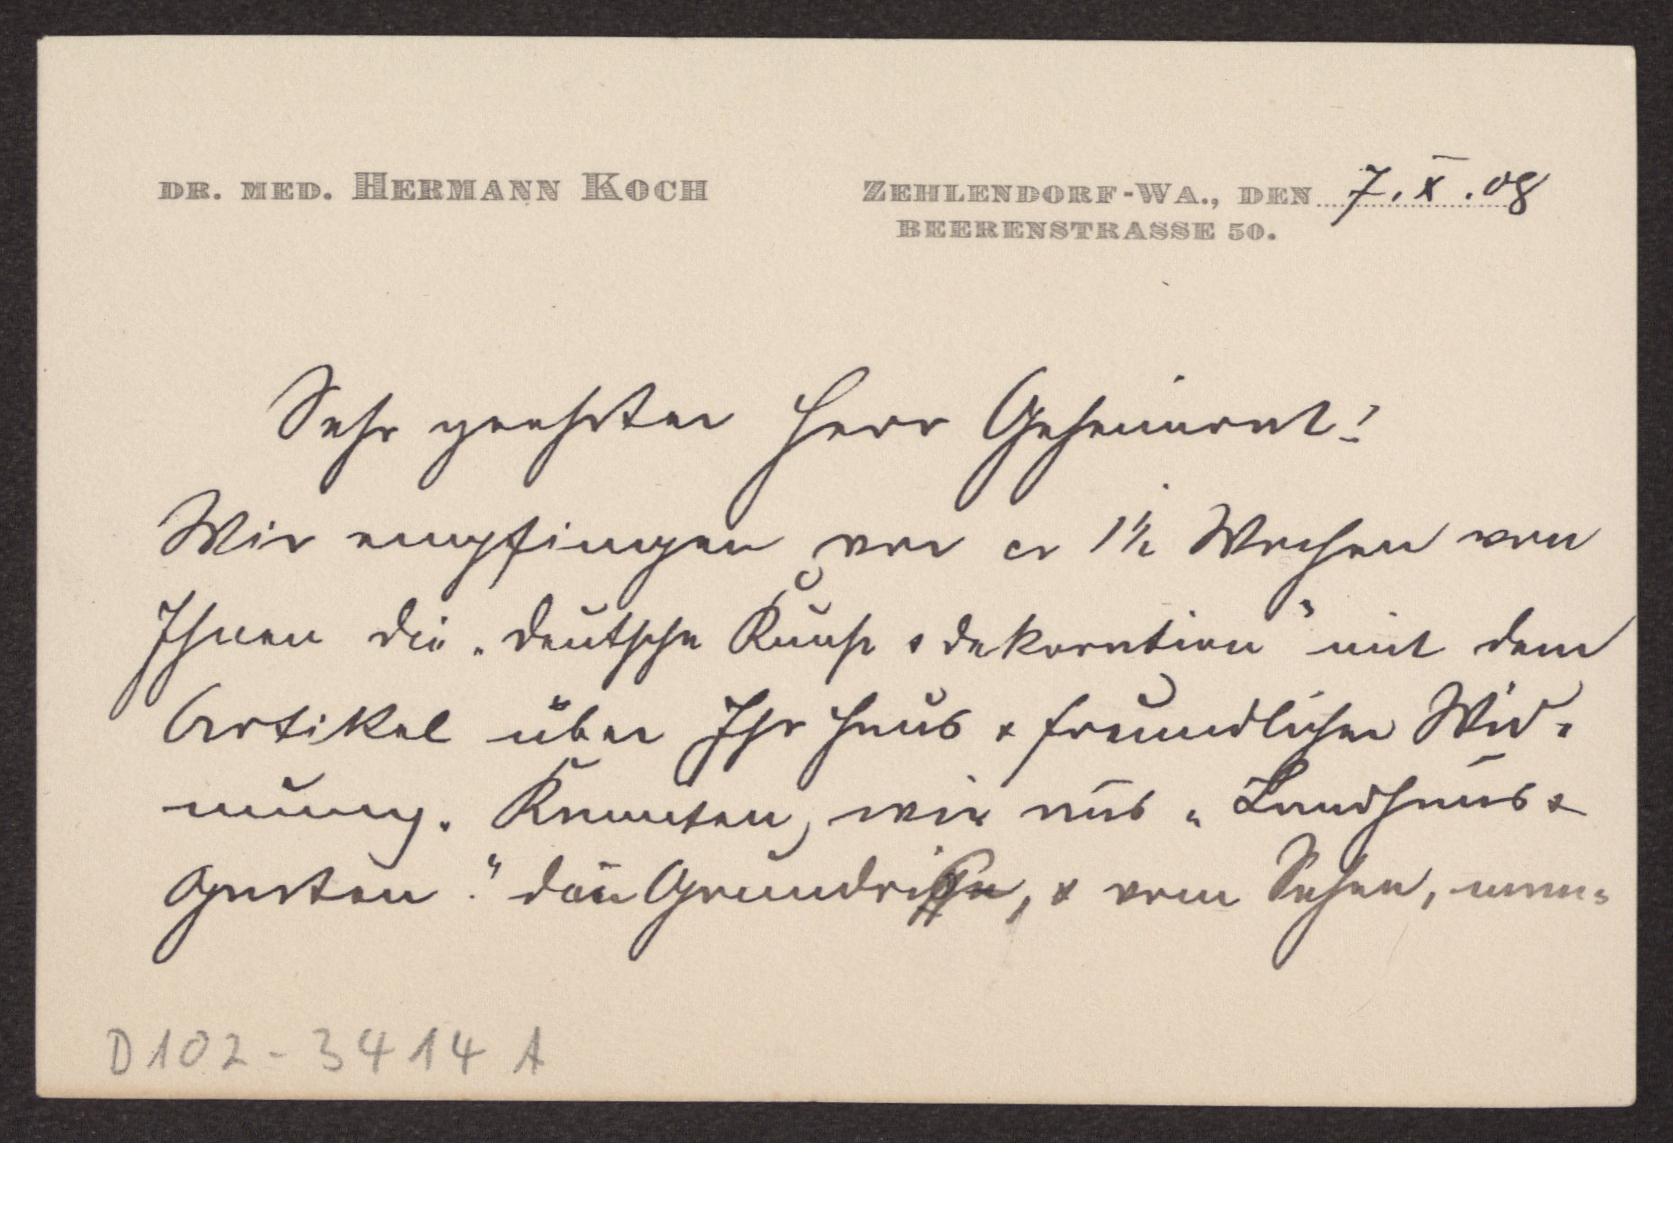 DR. MED. HERMANN KOCH
ZEHLENDORF-WA., DEN 7. X. 08
BEERENSTRASSE 50.
Sehr geehrter Herr Geheimrat!
Wir empfingen vor cr 1½ Wochen von
Ihnen die „Deutsche Kunst & Dekoration" mit dem
Artikel über Ihr Haus & freundlicher Wid-
mung. Kannten wir aus „Landhaus &
Garten." den Grundriss, & vom Sehen,
D102-3414 A